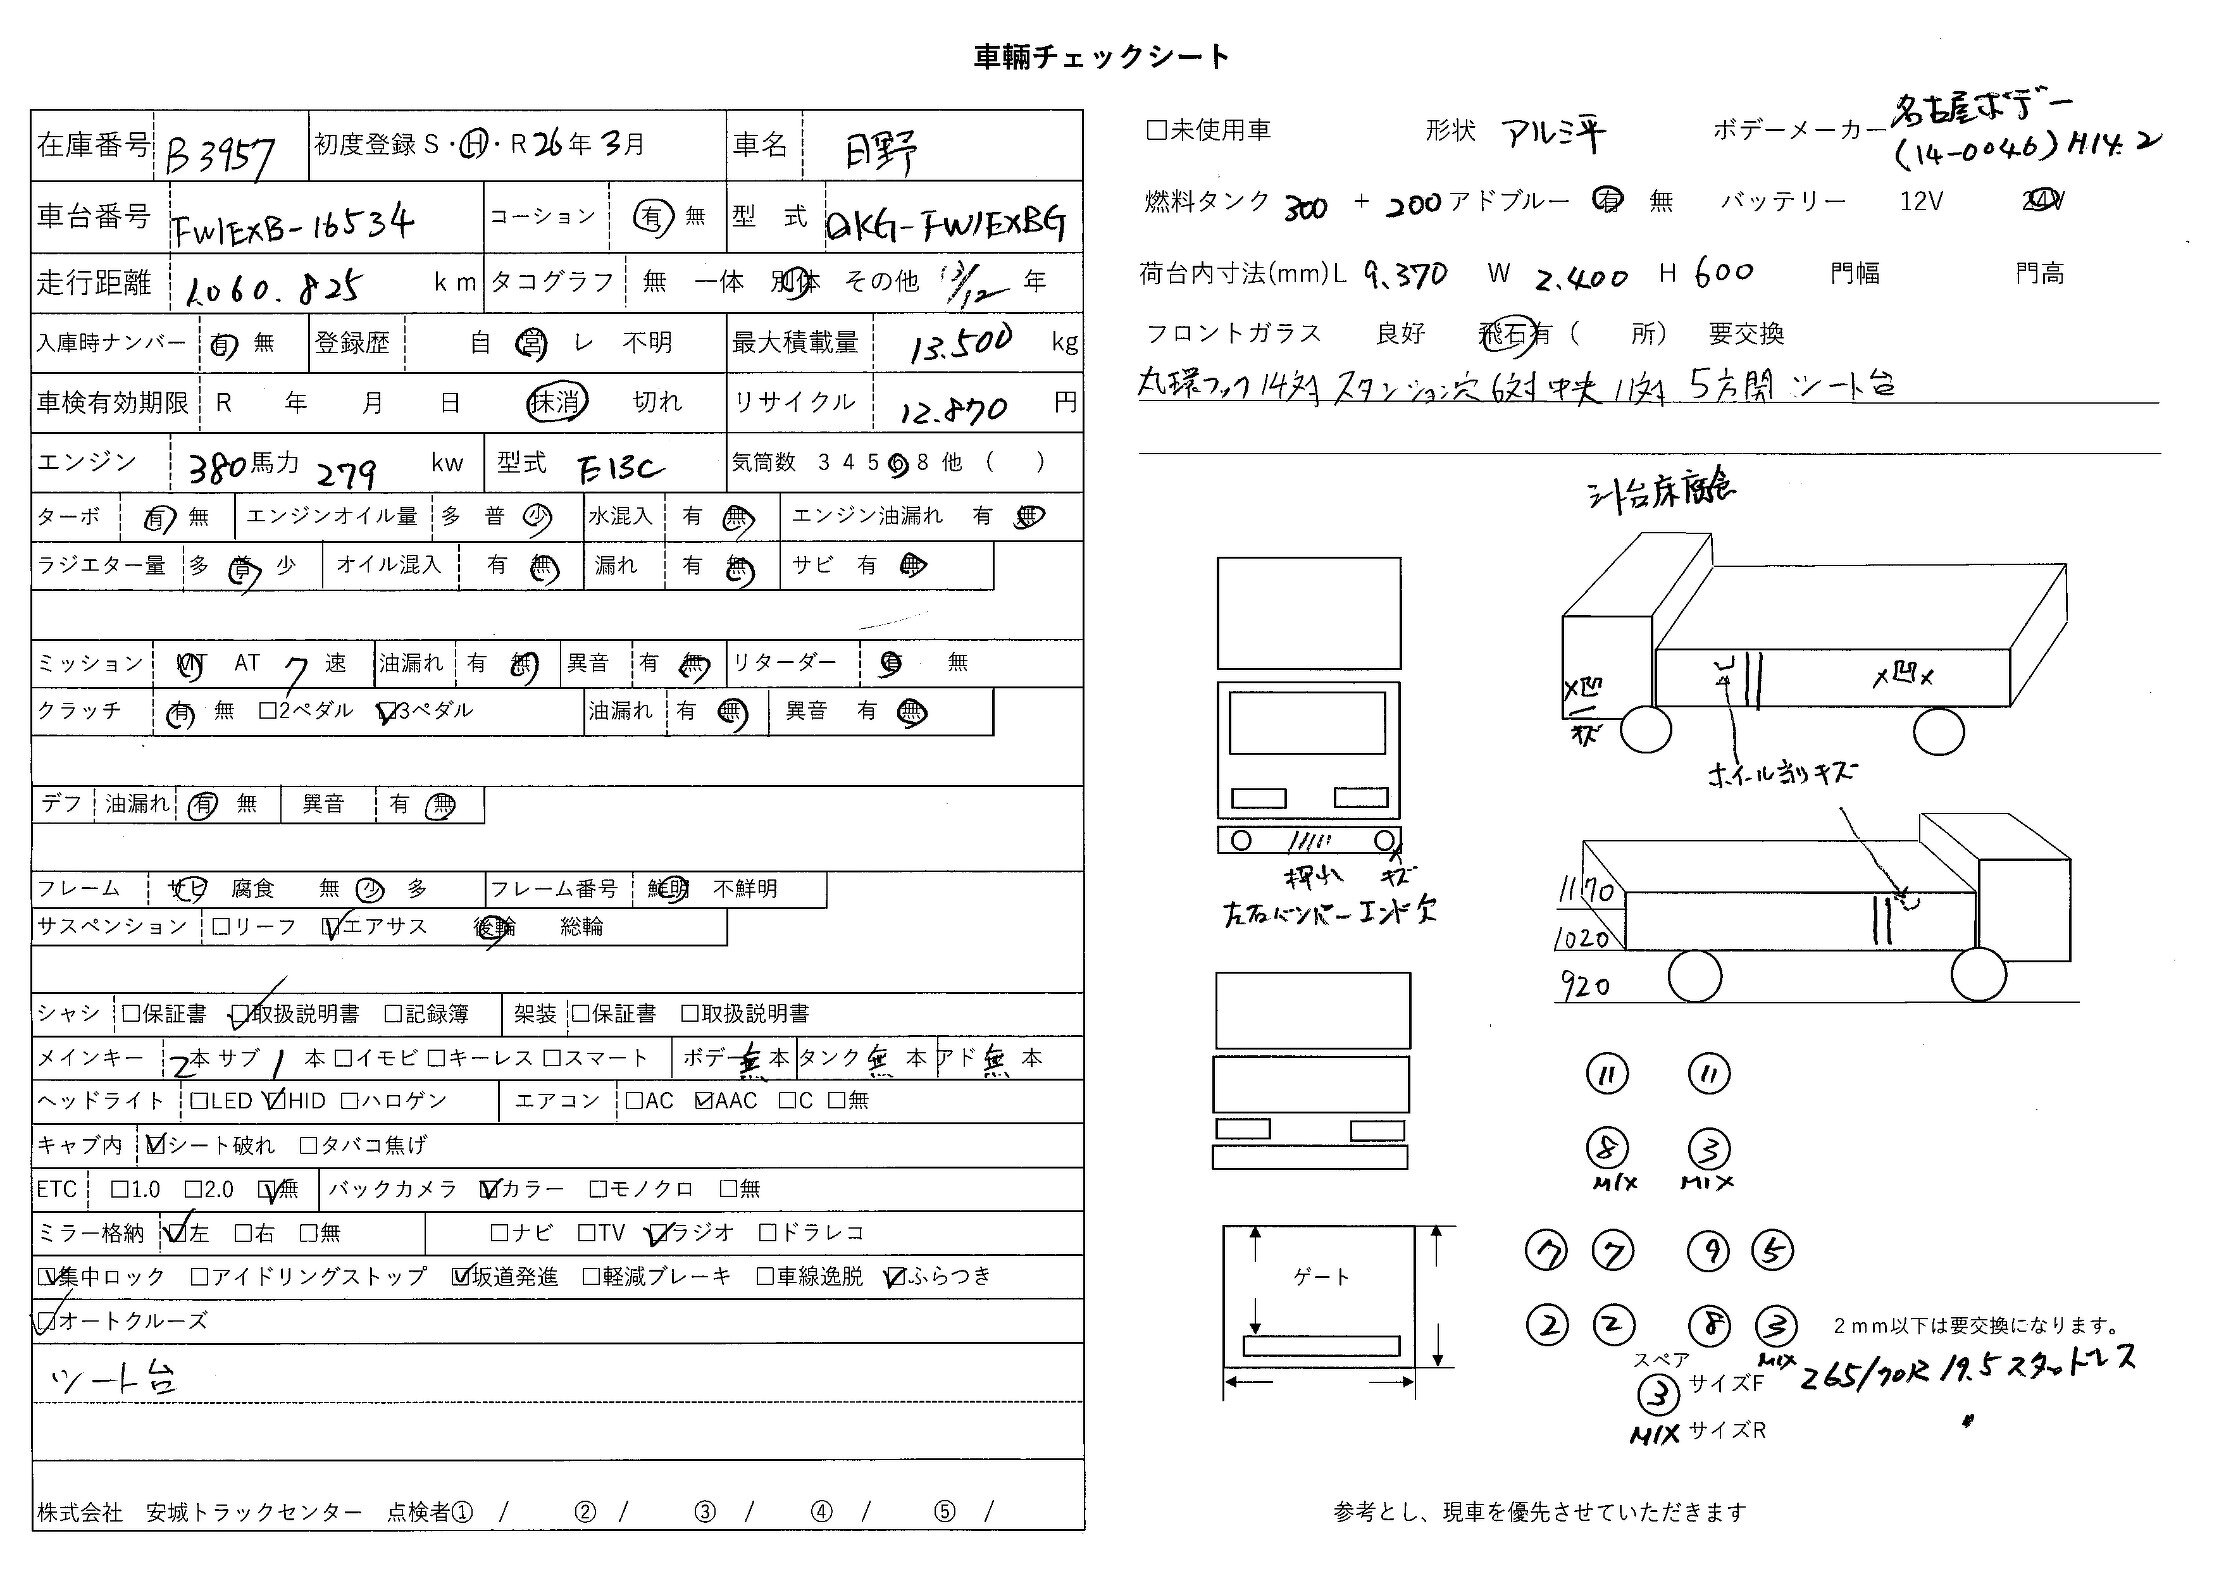 車輛チェックシート
在庫番号 B3957 初度登録 S・H・R 26年 3月 車名 日野
車台番号 FW1EXB-16534 コーション 有 無 型 式 QKG-FW1EXBG
走行距離 1.060.825 km タコグラフ 無 一体 別体 その他 '13/12 年
入庫時ナンバー 有 無 登録歴 自 営 レ 不明 最大積載量 13.500 kg
車検有効期限 R 年 月 日 抹消 切れ リサイクル 12.870 円
エンジン 380馬力 279 kw 型式 E13C 気筒数 3 4 5 6 8 他 ( )
ターボ 有 無 エンジンオイル量 多 普 少 水混入 有 無 エンジン油漏れ 有 無
ラジエター量 多 普 少 オイル混入 有 無 漏れ 有 無 サビ 有 無
ミッション MT AT 7 速 油漏れ 有 無 異音 有 無 リターダー 有 無
クラッチ 有 無 □2ペダル ☑3ペダル 油漏れ 有 無 異音 有 無
デフ 油漏れ 有 無 異音 有 無
フレーム サビ 腐食 無 少 多 フレーム番号 鮮明 不鮮明
サスペンション □リーフ ☑エアサス 後輪 総輪
シャシ □保証書 ☑取扱説明書 □記録簿 架装 □保証書 □取扱説明書
メインキー 2本 サブ 1 本 □イモビ □キーレス □スマート ボデー無本 タンク無 本 アド無 本
ヘッドライト □LED ☑HID □ハロゲン エアコン □AC ☑AAC □C □無
キャブ内 ☑シート破れ □タバコ焦げ
ETC □1.0 □2.0 ☑無 バックカメラ ☑カラー □モノクロ □無
ミラー格納 ☑左 □右 □無 □ナビ □TV ☑ラジオ □ドラレコ
☑集中ロック □アイドリングストップ ☑坂道発進 □軽減ブレーキ □車線逸脱 ☑ふらつき
☑オートクルーズ
ツート台
株式会社 安城トラックセンター 点検者① / ② / ③ / ④ / ⑤ /
□未使用車 形状 アルミ平 ボデーメーカー 名古屋ボデー
(14-0046) H14.2
燃料タンク 300 + 200 アドブルー 有 無 バッテリー 12V 24V
荷台内寸法(mm) L 9.370 W 2.400 H 600 門幅 門高
フロントガラス 良好 飛石有 ( 所) 要交換
丸環フック14対 スタンション穴 6対 中央 11対 5方開 ツート台
シート台床腐食
×凹
キズ
×凹×
ホイール当りキズ
キズ
左右バンパーエンド欠
1170
1020
920
11 11
8 3
MIX MIX
7 7 9 5
2 2 8 3
MIX
2mm以下は要交換になります。
ゲート
スペア
3
MIX
サイズF 265/70R 19.5 スタットレス
サイズR
参考とし、現車を優先させていただきます